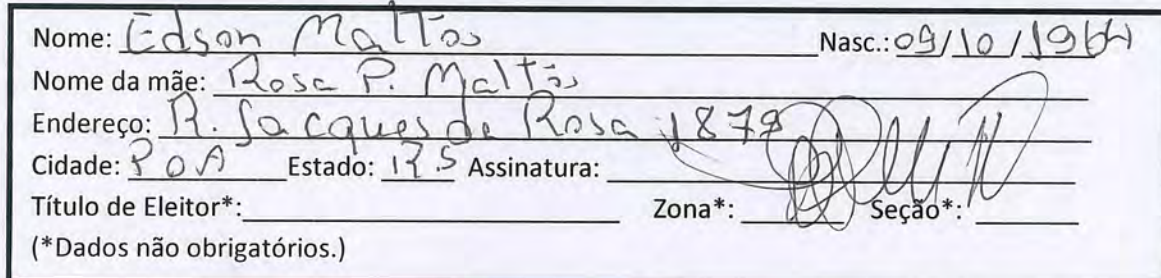 Nome: Edson Mattos Nasc.: 09/10/1964
Nome da mãe: Rosa P. Mattos
Endereço: R. Jacques da Rosa 1879
Cidade: POA Estado: RS Assinatura:
Título de Eleitor*: Zona*: Seção*:
(*Dados não obrigatórios.)